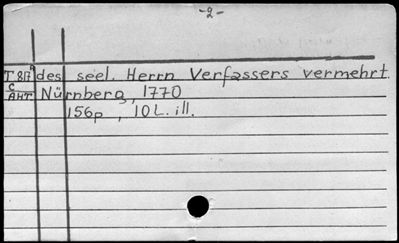 -2-
des seel. Herrn Verfassers vermehrt.
C Nürnberg, 1770
AHT
156p, 10 L. ill.